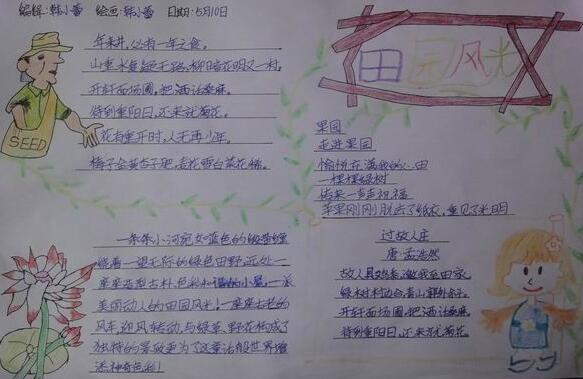 编辑:韩小蕾 绘画:韩小蕾 日期:5月10日
田园风光
SEED
年来丰,必有一年之食。
山重水复疑无路,柳暗花明又一村。
开轩面场圃,把酒话桑麻。
待到重阳日,还来就菊花。
花有重开时,人无再少年。
梅子金黄杏子肥,麦花雪白菜花稀。
果园
走进果园
恰似在满我的 田
一棵棵绿树
传来一声声祝福
苹果刚刚脱去了纸衣,重见了光明
一条条小河宛如蓝色的缎带缠
绕着一望无际的绿色田野,近处一
座座造型古朴,色彩和谐的小屋,一派
美丽动人的田园风光!一座座古老的
风车迎风转动,与绿草、野花构成了
独特的景致更为了这童话般世界增
添神奇色彩!
过故人庄
唐·孟浩然
故人具鸡黍,邀我至田家。
绿树村边合,青山郭外斜。
开轩面场圃,把酒话桑麻。
待到重阳日,还来就菊花。